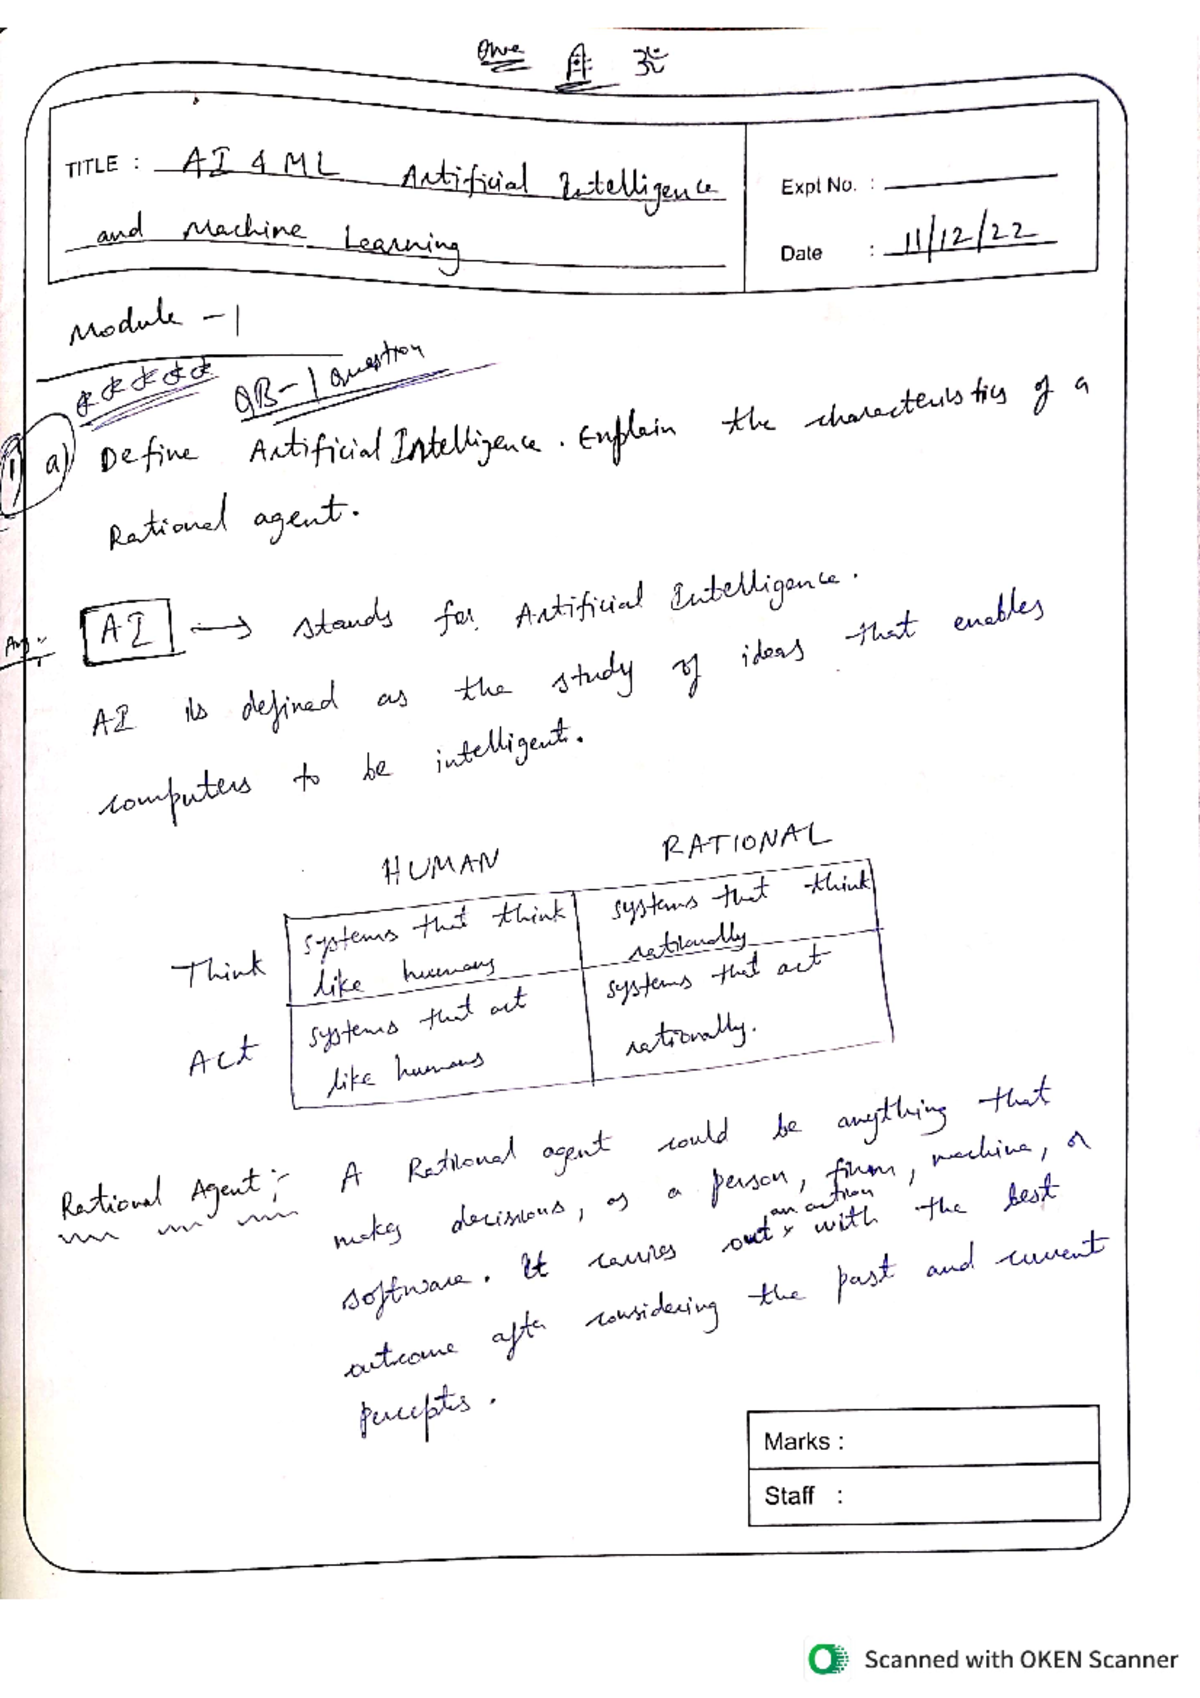 ॐ
TITLE : AI & ML Artificial Intelligence
and Machine Learning
Expl No. :
Date : 11/12/22
Module - 1
QB-1 question
1) a) Define Artificial Intelligence. Explain the characteristics of a
Rational agent.
Ans:- AI → stands for Artificial Intelligence.
AI is defined as the study of ideas that enables
computers to be intelligent.
HUMAN RATIONAL
Think systems that think like humans
systems that think rationally
Act systems that act like humans
systems that act rationally.
Rational Agent:- A Rational agent could be anything that
makes decisions, as a person, firm, machine, or
software. It carries out an action with the best
outcome after considering the past and current
percepts.
Marks :
Staff :
Scanned with OKEN Scanner